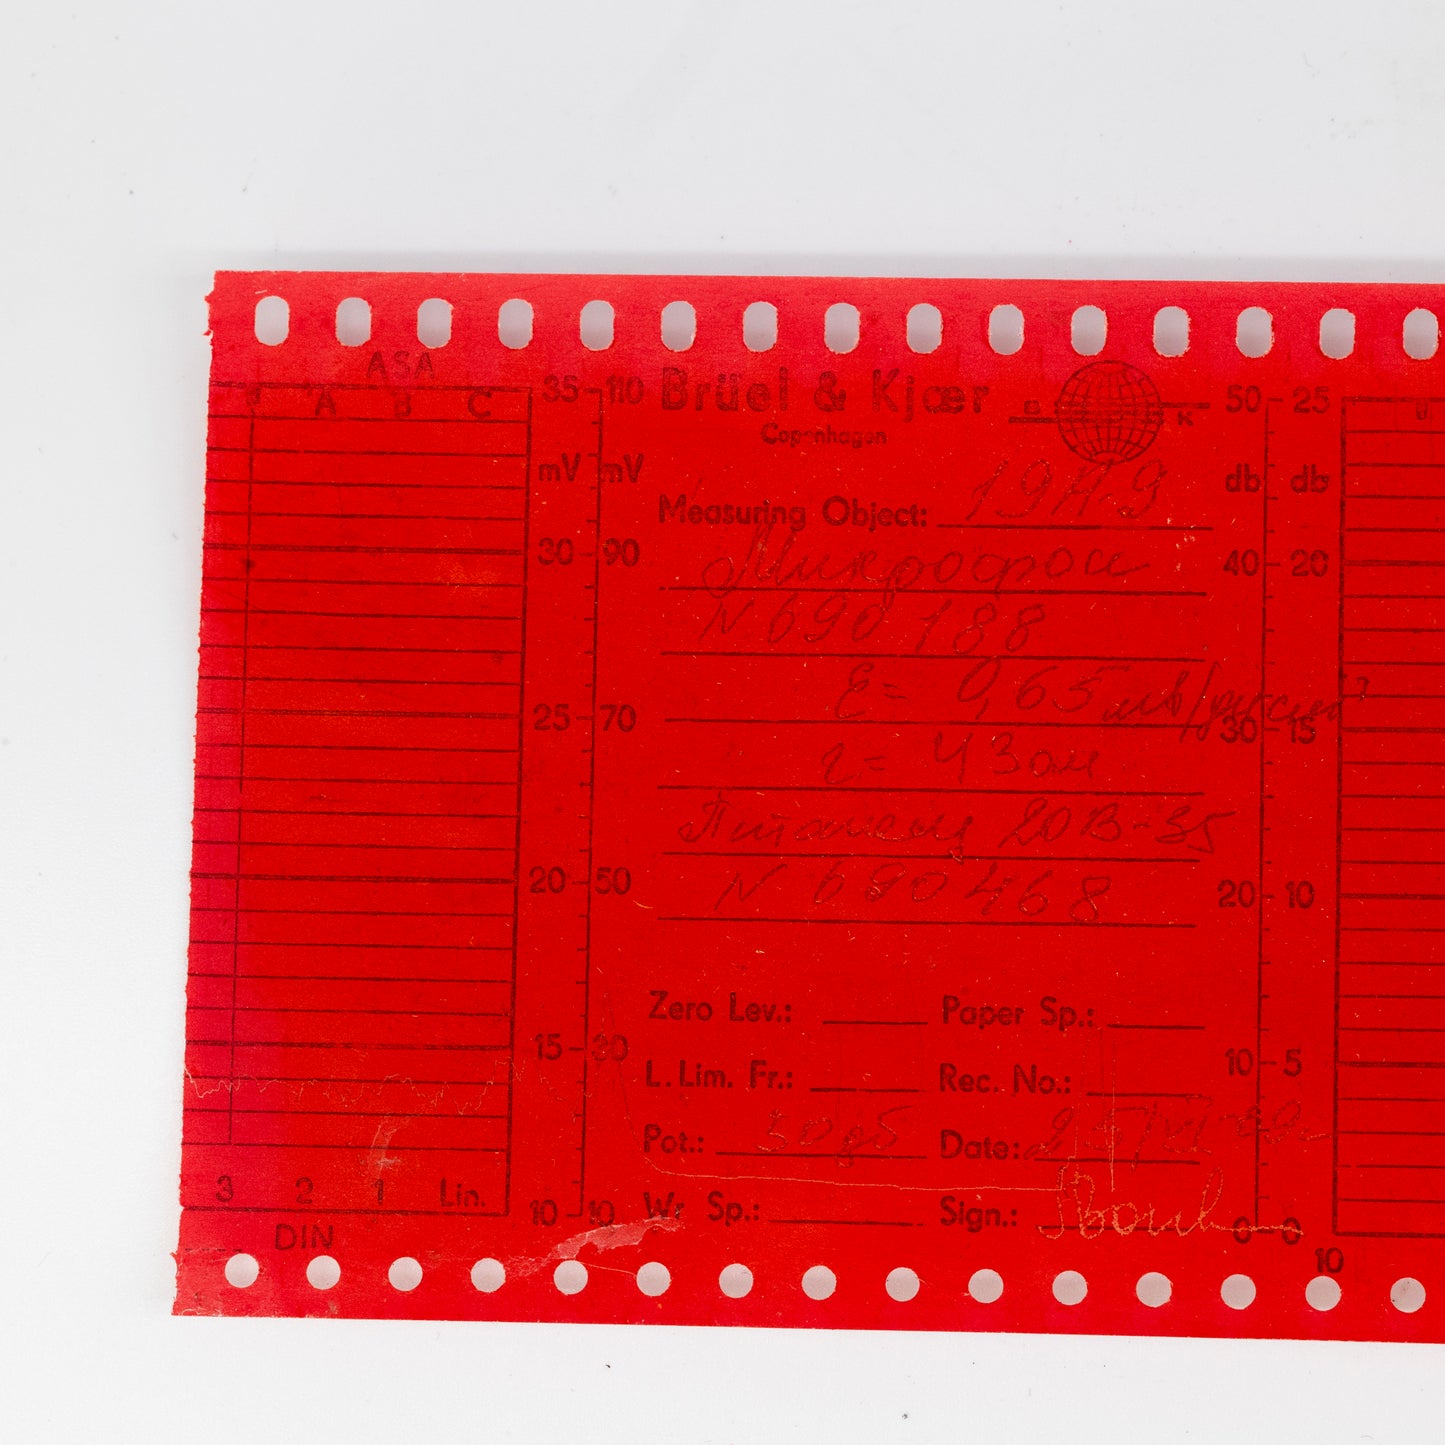 ASA
A B C
35 110 Brüel & Kjær B K 50 25
Copenhagen
mV mV db db
Measuring Object: 19А-9
30 90 Микрофон 40 20
N 690 188
E = 0,65 мв/дн/см²
25 70 30 15
r = 43 ом
Питание 20В-35
20 50 N 690468 20 10
Zero Lev.: Paper Sp.:
15 30 L. Lim. Fr.: Rec. No.: 10 5
Pot.: 50 дб Date:
3 2 1 Lin.
10 10 Wr Sp.: Sign.: 0 0
DIN 10